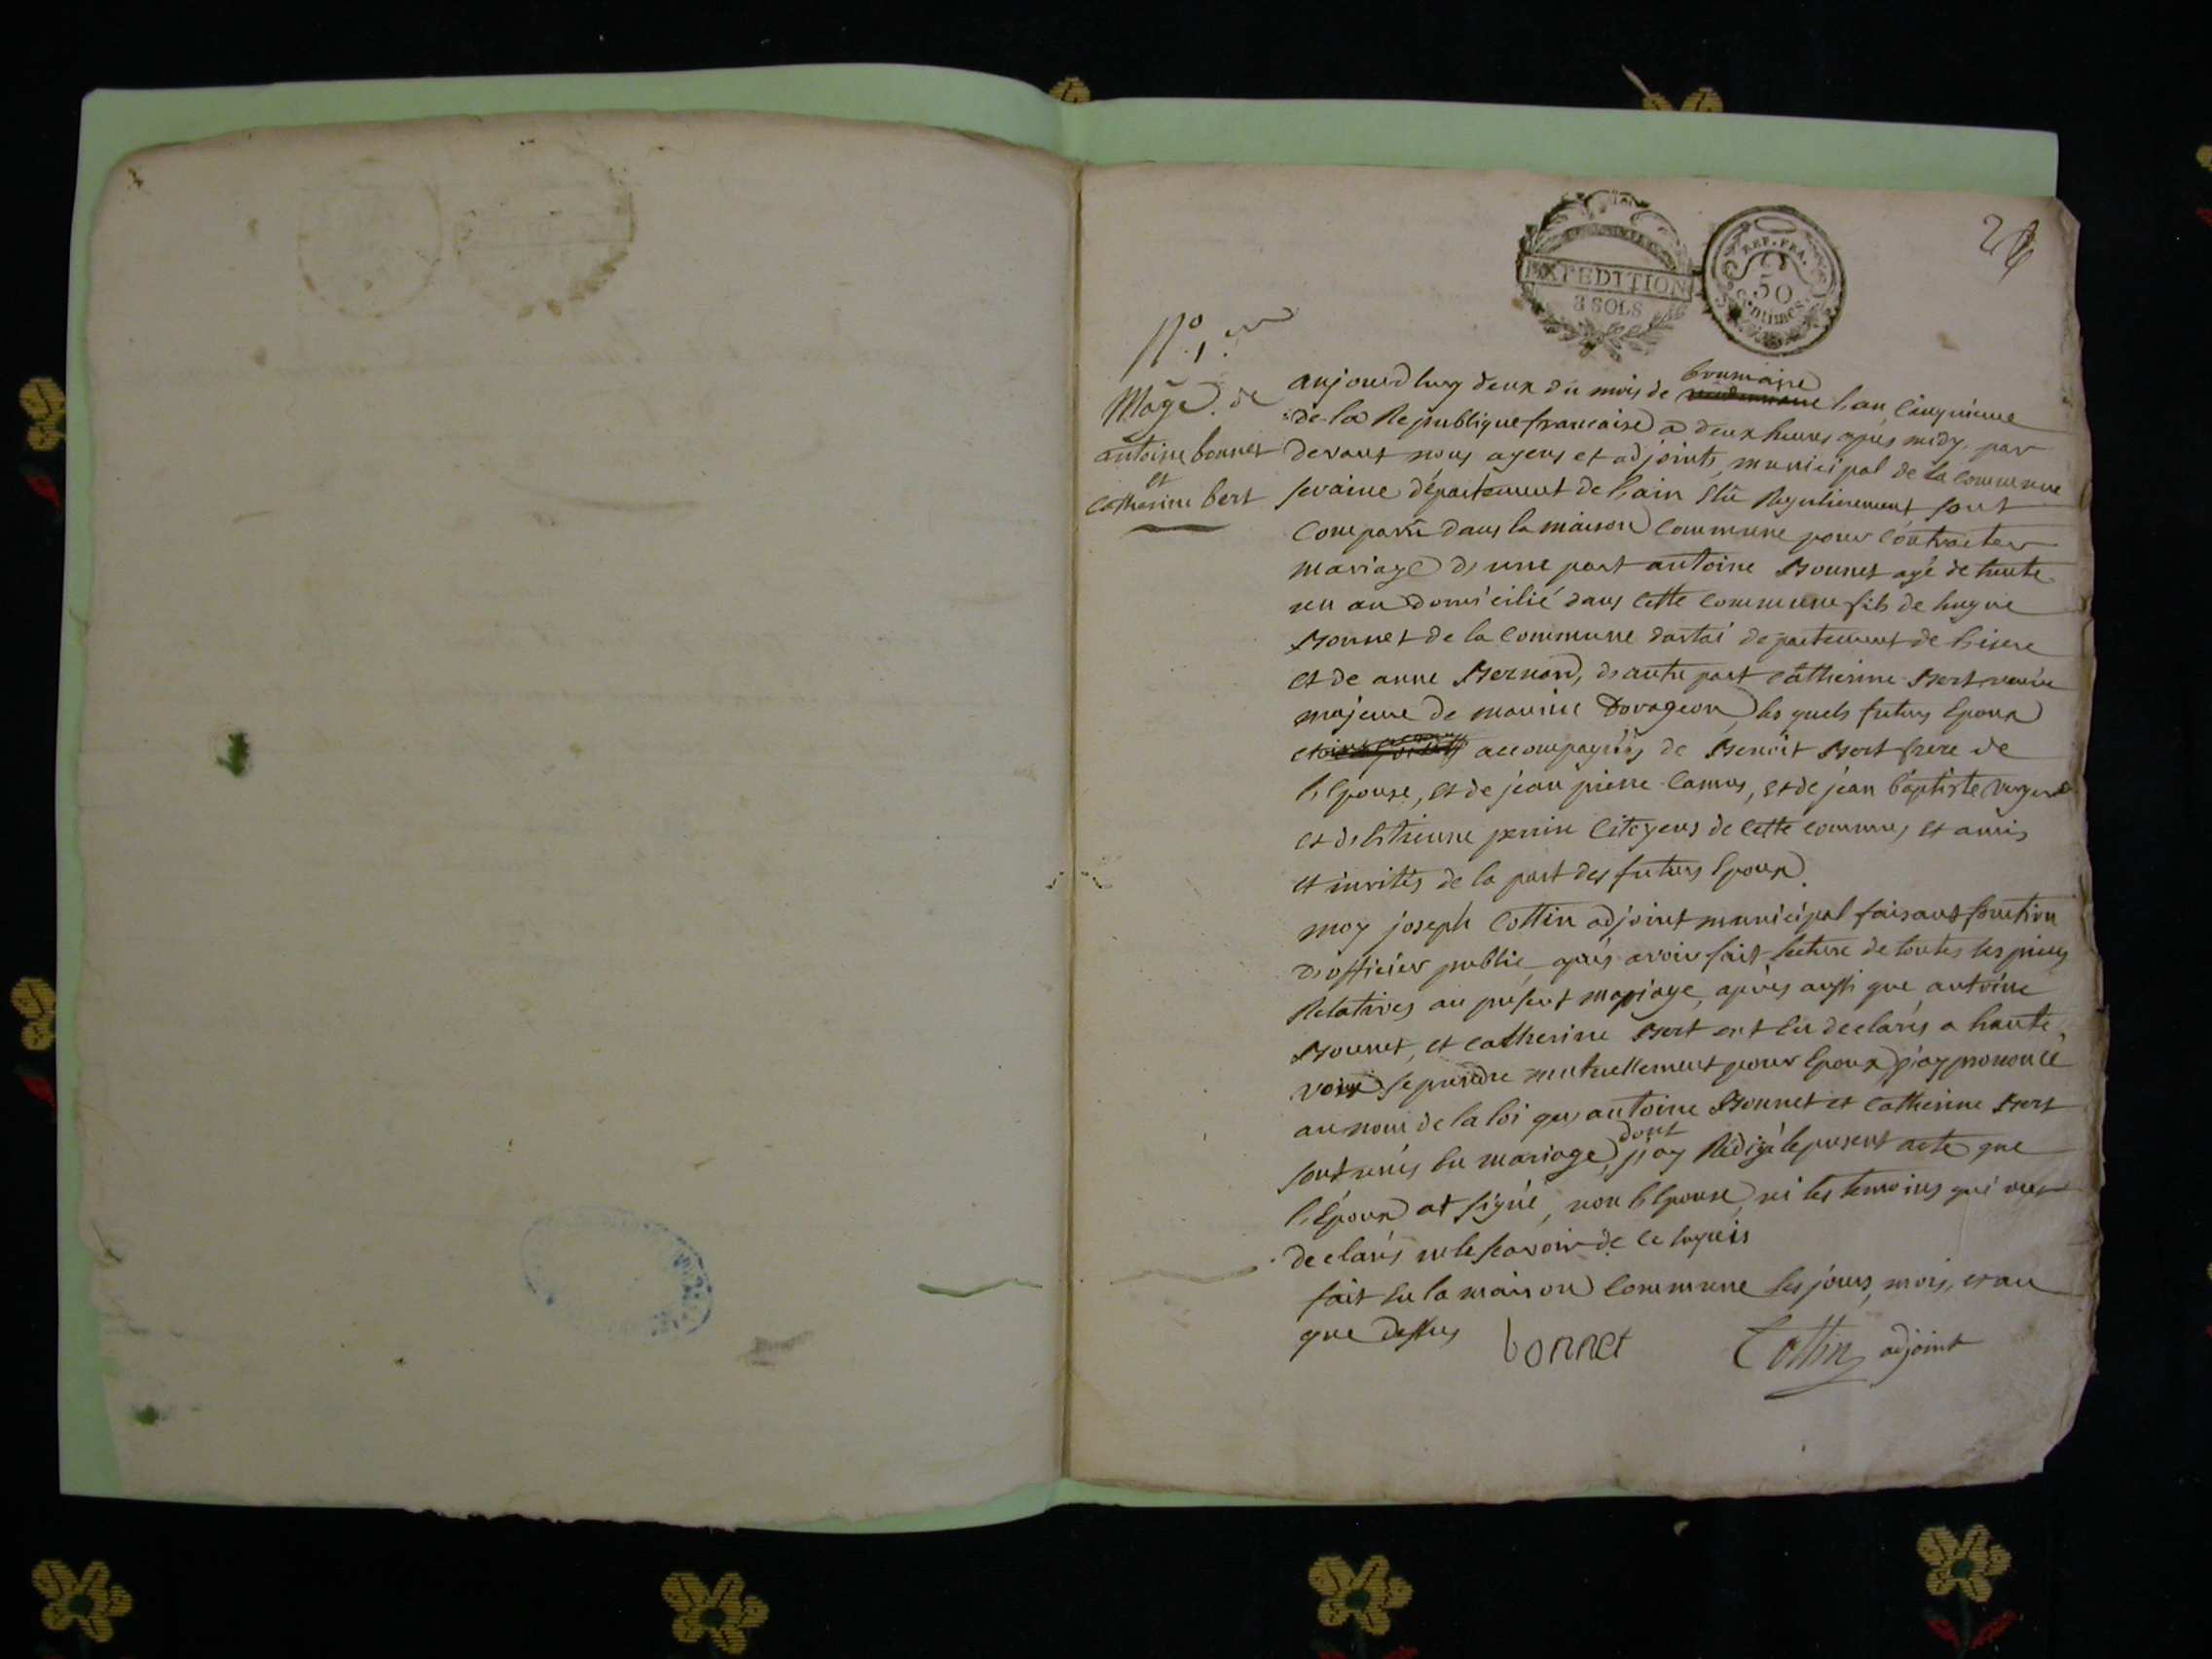 EXPEDITION
3 SOLS
REP. FRA.
50
centimes
2
N.° 1.er
Mage. de
antoine bonnet
et
Catherine bert
aujourdhuy deux du mois de brumaire l'an cinquieme
de la Republique francaise a deux heures après midy. par
devant nous agens et adjoints municipal de la commune
département de l'ain élû Regulierement sont
Comparû dans la maison Commune pour Contracter
mariage d'une part antoine Bonnet agé de trente
un an domicilié dans cette commune fils de hugue
Bonnet de la Commune departement de l'isere
et de anne d'autre part Catherine Bert veuve
majeure de maurice les quels futurs Epoux
accompagnés de Benoit Bert frere de
l'Epouse, et de jean pierre Camus, et de jean baptiste
et d'Etienne perrin Citoyens de cette commune et amis
et invités de la part des futurs Epoux.
moy joseph Cottin adjoint municipal faisant fonction
d'officier public après avoir fait lecture de toutes les pieces
Relatives au present mariage, après aussi que antoine
Bonnet, et Catherine Bert ont eu declarés a haute
voix se prendre mutuellement pour Epoux j'ay prononcé
au nom de la loi que antoine Bonnet et Catherine Bert
sont unis en mariage, dont j'ay Rédigé le present acte que
l'Epoux at signé, non l'Epouse, ni les temoins qui ont
declarés ne le scavoir de ce
fait en la maison Commune les jours, mois, et an
que dessus
bonnet
Cottin adjoint